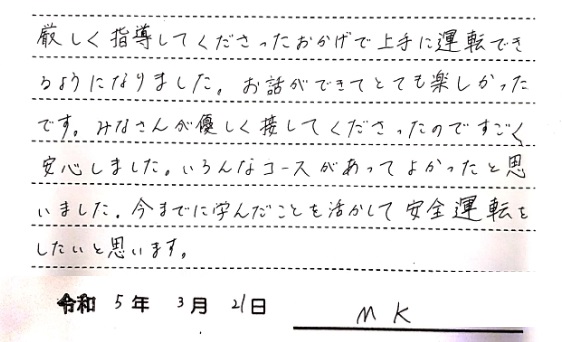 厳しく指導してくださったおかげで上手に運転でき
るようになりました。お話ができてとても楽しかった
です。みなさんが優しく接してくださったのですごく
安心しました。いろんなコースがあってよかったと思
いました。今までに学んだことを活かして安全運転を
したいと思います。
令和 5年 3月 21日 M K